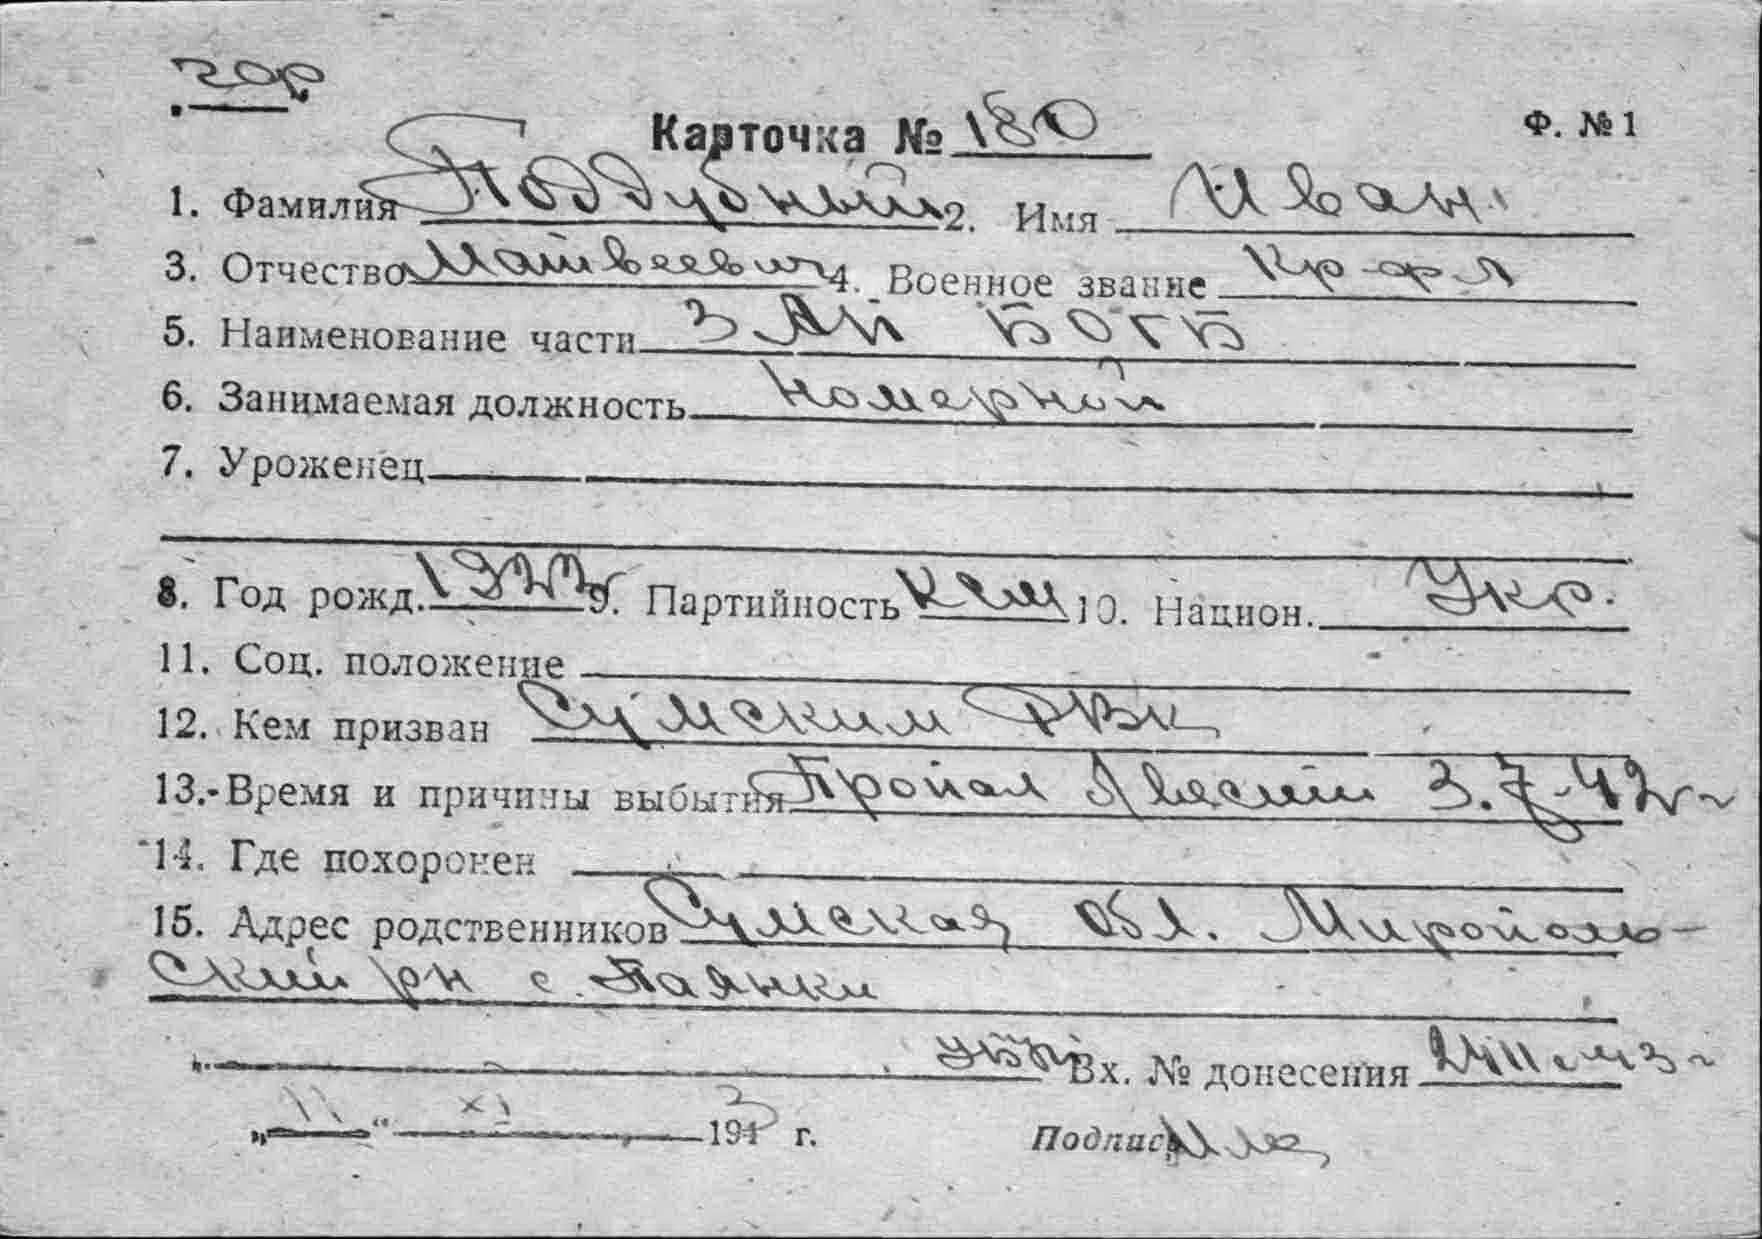 Карточка № 180 Ф. № 1
1. Фамилия Поддубный 2. Имя Иван
3. Отчество Матвеевич 4. Военное звание Кр-фл
5. Наименование части 3 АП БОГБ
6. Занимаемая должность номерной
7. Уроженец
8. Год рожд. 1922 г 9. Партийность 10. Национ. Укр.
11. Соц. положение
12. Кем призван Сумским РВК
13. Время и причины выбытия Пропал 3.7.42 г
14. Где похоронен
15. Адрес родственников Сумская обл. Мирополь-
ский рн с.
Вх. № донесения
„11" XI 1943 г. Подпись